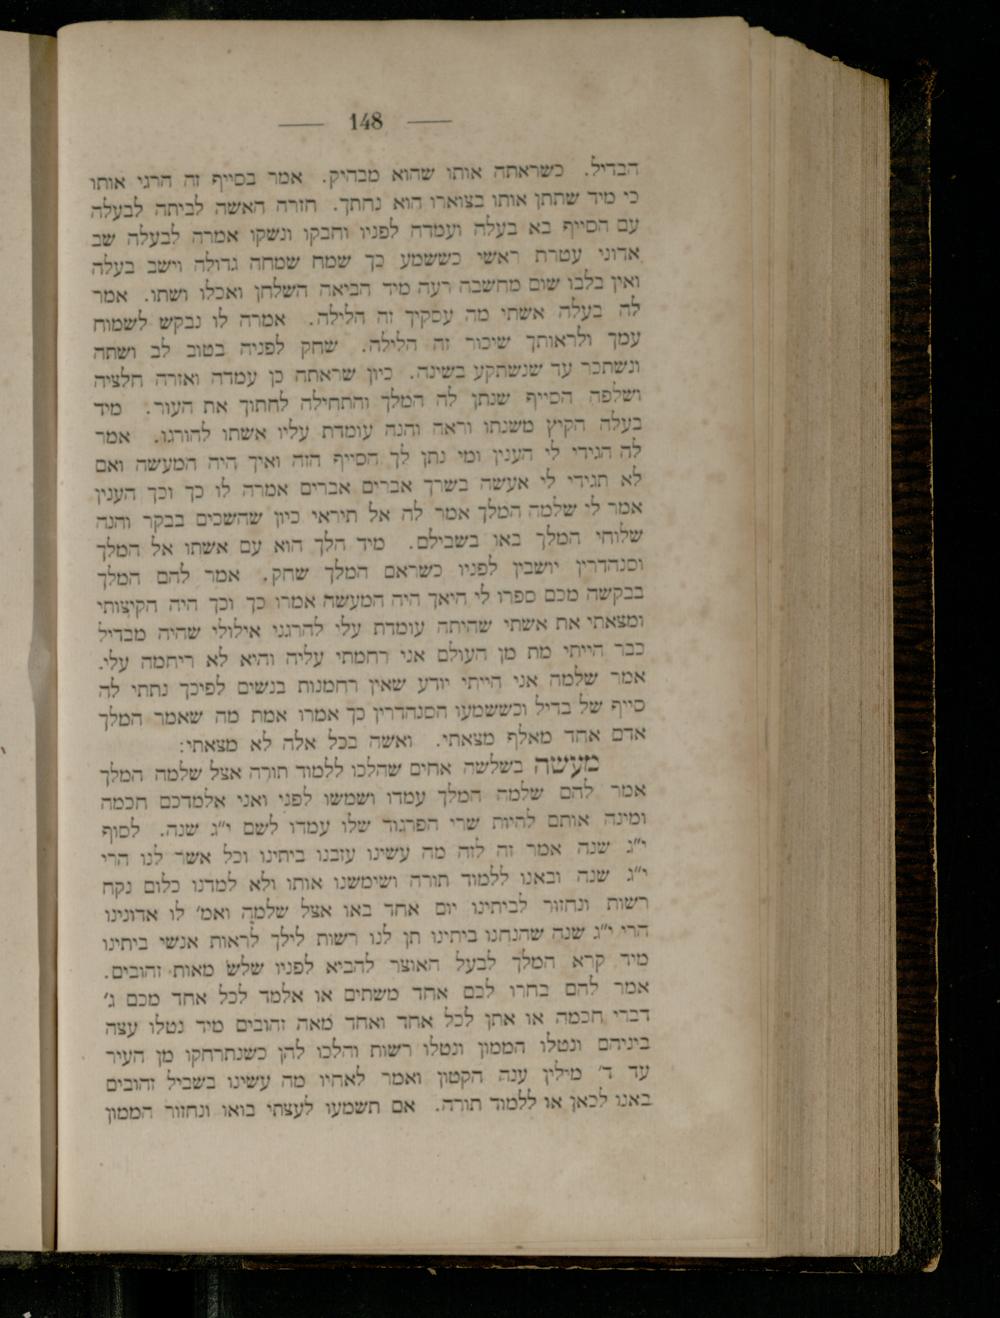 — 148 —
הבדיל. כשראתה אותו שהוא מבהיק. אמר בסייף זה הרגי אותו
כי מיד שתתן אותו בצוארו הוא נחתך. חזרה האשה לביתה לבעלה
עם הסייף בא בעלה ועמדה לפניו וחבקו ונשקו אמרה לבעלה שב
אדוני עטרת ראשי כששמע כך שמח שמחה גדולה וישב בעלה
ואין בלבו שום מחשבה רעה מיד הביאה השלחן ואכלו ושתו. אמר
לה בעלה אשתי מה עסקיך זה הלילה. אמרה לו נבקש לשמוח
עמך ולראותך שיכור זה הלילה. שחק לפניה בטוב לב ושתה
ונשתכר עד שנשתקע בשינה. כיון שראתה כן עמדה ואזרה חלציה
ושלפה הסייף שנתן לה המלך והתחילה לחתוך את העור. מיד
בעלה הקיץ משנתו וראה והנה עומדת עליו אשתו להורגו. אמר
לה הגידי לי הענין ומי נתן לך הסייף הזה ואיך היה המעשה ואם
לא תגידי לי אעשה בשרך אברים אברים אמרה לו כך וכך הענין
אמר לי שלמה המלך אמר לה אל תיראי כיון שהשכים בבקר והנה
שלוחי המלך באו בשבילם. מיד הלך הוא עם אשתו אל המלך
וסנהדרין יושבין לפניו כשראם המלך שחק. אמר להם המלך
בבקשה מכם ספרו לי היאך היה המעשה אמרו כך וכך היה הקיצותי
ומצאתי את אשתי שהיתה עומדת עלי להרגני אילולי שהיה מבדיל
כבר הייתי מת מן העולם אני רחמתי עליה והיא לא ריחמה עלי.
אמר שלמה אני הייתי יודע שאין רחמנות בנשים לפיכך נתתי לה
סייף של בדיל וכששמעו הסנהדרין כך אמרו אמת מה שאמר המלך
אדם אחד מאלף מצאתי. ואשה בכל אלה לא מצאתי:
מעשה בשלשה אחים שהלכו ללמוד תורה אצל שלמה המלך
אמר להם שלמה המלך עמדו ושמשו לפני ואני אלמדכם חכמה
ומינה אותם להיות שרי הפרגוד שלו עמדו לשם י״ג שנה. לסוף
י״ג שנה אמר זה לזה מה עשינו עזבנו ביתינו וכל אשר לנו הרי
י״ג שנה ובאנו ללמוד תורה ושימשנו אותו ולא למדנו כלום נקח
רשות ונחזור לביתינו יום אחד באו אצל שלמה ואמ׳ לו אדונינו
הרי י״ג שנה שהנחנו ביתינו תן לנו רשות לילך לראות אנשי ביתינו
מיד קרא המלך לבעל האוצר להביא לפניו שלש מאות זהובים.
אמר להם בחרו לכם אחד משתים או אלמד לכל אחד מכם ג׳
דברי חכמה או אתן לכל אחד ואחד מאה זהובים מיד נטלו עצה
ביניהם ונטלו הממון ונטלו רשות והלכו להן כשנתרחקו מן העיר
עד ד׳ מילין ענה הקטון ואמר לאחיו מה עשינו בשביל זהובים
באנו לכאן או ללמוד תורה. אם תשמעו לעצתי בואו ונחזור הממון